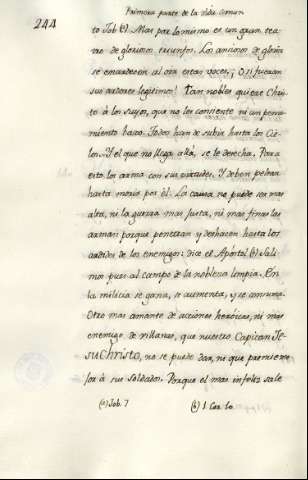 Primera parte de la vida comun
244
to Job (a). Mas por lo mismo es un gran tea
tro de gloriosos triunfos. Los ansiosos de gloria
se enardecen al oir estas voces, ¡O si fueran
sus ardores legitimos! Tan nobles quiere Chris
to à los suyos, que no les consiente ni un pensa
miento baxo. Todos han de subir hasta los Cie
los. Y el que no llega allà, se le derecha. Para
esto los arma con sus virtudes. Y deben pelear
hasta morir por èl. La causa no puede ser mas
alta, ni la guerra mas justa, ni mas finas las
armas porque penetran y deshacen hasta los
ardides de los enemigos: dice el Apostol (b). Sali
mos pues al campo de la nobleza limpia. En
la milicia se gana, se aumenta, y se consuma.
Otro mas amante de acciones heròicas, ni mas
enemigo de villanas, que nuestro Capitan Je
suChristo, no se puede dar, ni que premie me
jor à sus soldados. Porque el mas infeliz sale
(a) Job. 7 (b) 1. Cor. 10